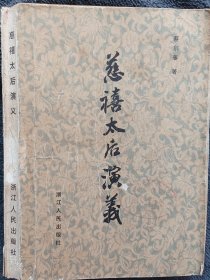 慈禧太后演义
浙江人民出版社
蔡东藩 著
慈禧太后演義
浙江人民出版社